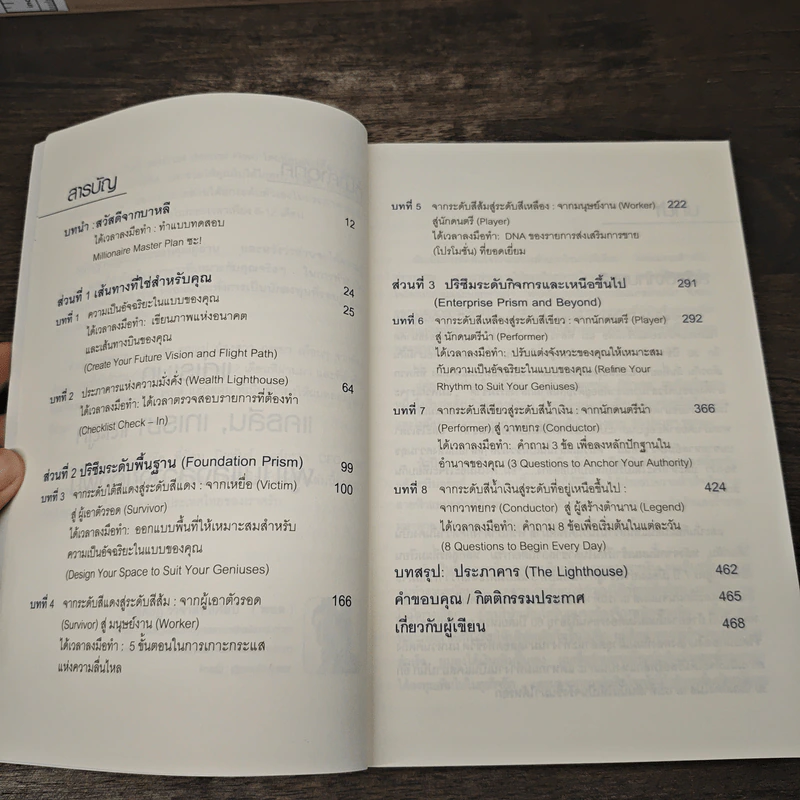 สารบัญ
บทนำ : สวัสดีจากบาหลี 12
ได้เวลาลงมือทำ : ทำแบบทดสอบ
Millionaire Master Plan ซะ!
ส่วนที่ 1 เส้นทางที่ใช่สำหรับคุณ 24
บทที่ 1 ความเป็นอัจฉริยะในแบบของคุณ 25
ได้เวลาลงมือทำ : เขียนภาพแห่งอนาคต
และเส้นทางบินของคุณ
(Create Your Future Vision and Flight Path)
บทที่ 2 ประภาคารแห่งความมั่งคั่ง (Wealth Lighthouse) 64
ได้เวลาลงมือทำ: ได้เวลาตรวจสอบรายการที่ต้องทำ
(Checklist Check – In)
ส่วนที่ 2 ปริซึมระดับพื้นฐาน (Foundation Prism) 99
บทที่ 3 จากระดับใต้สีแดงสู่ระดับสีแดง : จากเหยื่อ (Victim) 100
สู่ ผู้เอาตัวรอด (Survivor)
ได้เวลาลงมือทำ: ออกแบบพื้นที่ให้เหมาะสมสำหรับ
ความเป็นอัจฉริยะในแบบของคุณ
(Design Your Space to Suit Your Geniuses)
บทที่ 4 จากระดับสีแดงสู่ระดับสีส้ม : จากผู้เอาตัวรอด 166
(Survivor) สู่ มนุษย์งาน (Worker)
ได้เวลาลงมือทำ : 5 ขั้นตอนในการเกาะกระแส
แห่งความลื่นไหล
บทที่ 5 จากระดับสีส้มสู่ระดับสีเหลือง : จากมนุษย์งาน (Worker) 222
สู่นักดนตรี (Player)
ได้เวลาลงมือทำ: DNA ของรายการส่งเสริมการขาย
(โปรโมชั่น) ที่ยอดเยี่ยม
ส่วนที่ 3 ปริซึมระดับกิจการและเหนือขึ้นไป 291
(Enterprise Prism and Beyond)
บทที่ 6 จากระดับสีเหลืองสู่ระดับสีเขียว : จากนักดนตรี (Player) 292
สู่ นักดนตรีนำ (Performer)
ได้เวลาลงมือทำ: ปรับแต่งจังหวะของคุณให้เหมาะสม
กับความเป็นอัจฉริยะในแบบของคุณ (Refine Your
Rhythm to Suit Your Geniuses)
บทที่ 7 จากระดับสีเขียวสู่ระดับสีน้ำเงิน : จากนักดนตรีนำ 366
(Performer) สู่ วาทยกร (Conductor)
ได้เวลาลงมือทำ: คำถาม 3 ข้อ เพื่อลงหลักปักฐานใน
อำนาจของคุณ (3 Questions to Anchor Your Authority)
บทที่ 8 จากระดับสีน้ำเงินสู่ระดับที่อยู่เหนือขึ้นไป : 424
จากวาทยกร (Conductor) สู่ ผู้สร้างตำนาน (Legend)
ได้เวลาลงมือทำ: คำถาม 8 ข้อเพื่อเริ่มต้นในแต่ละวัน
(8 Questions to Begin Every Day)
บทสรุป: ประภาคาร (The Lighthouse) 462
คำขอบคุณ / กิตติกรรมประกาศ 465
เกี่ยวกับผู้เขียน 468